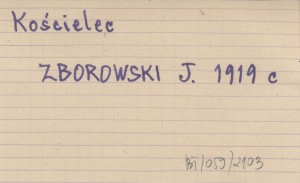 Kościelec
ZBOROWSKI J. 1919 c
BT/059/2103